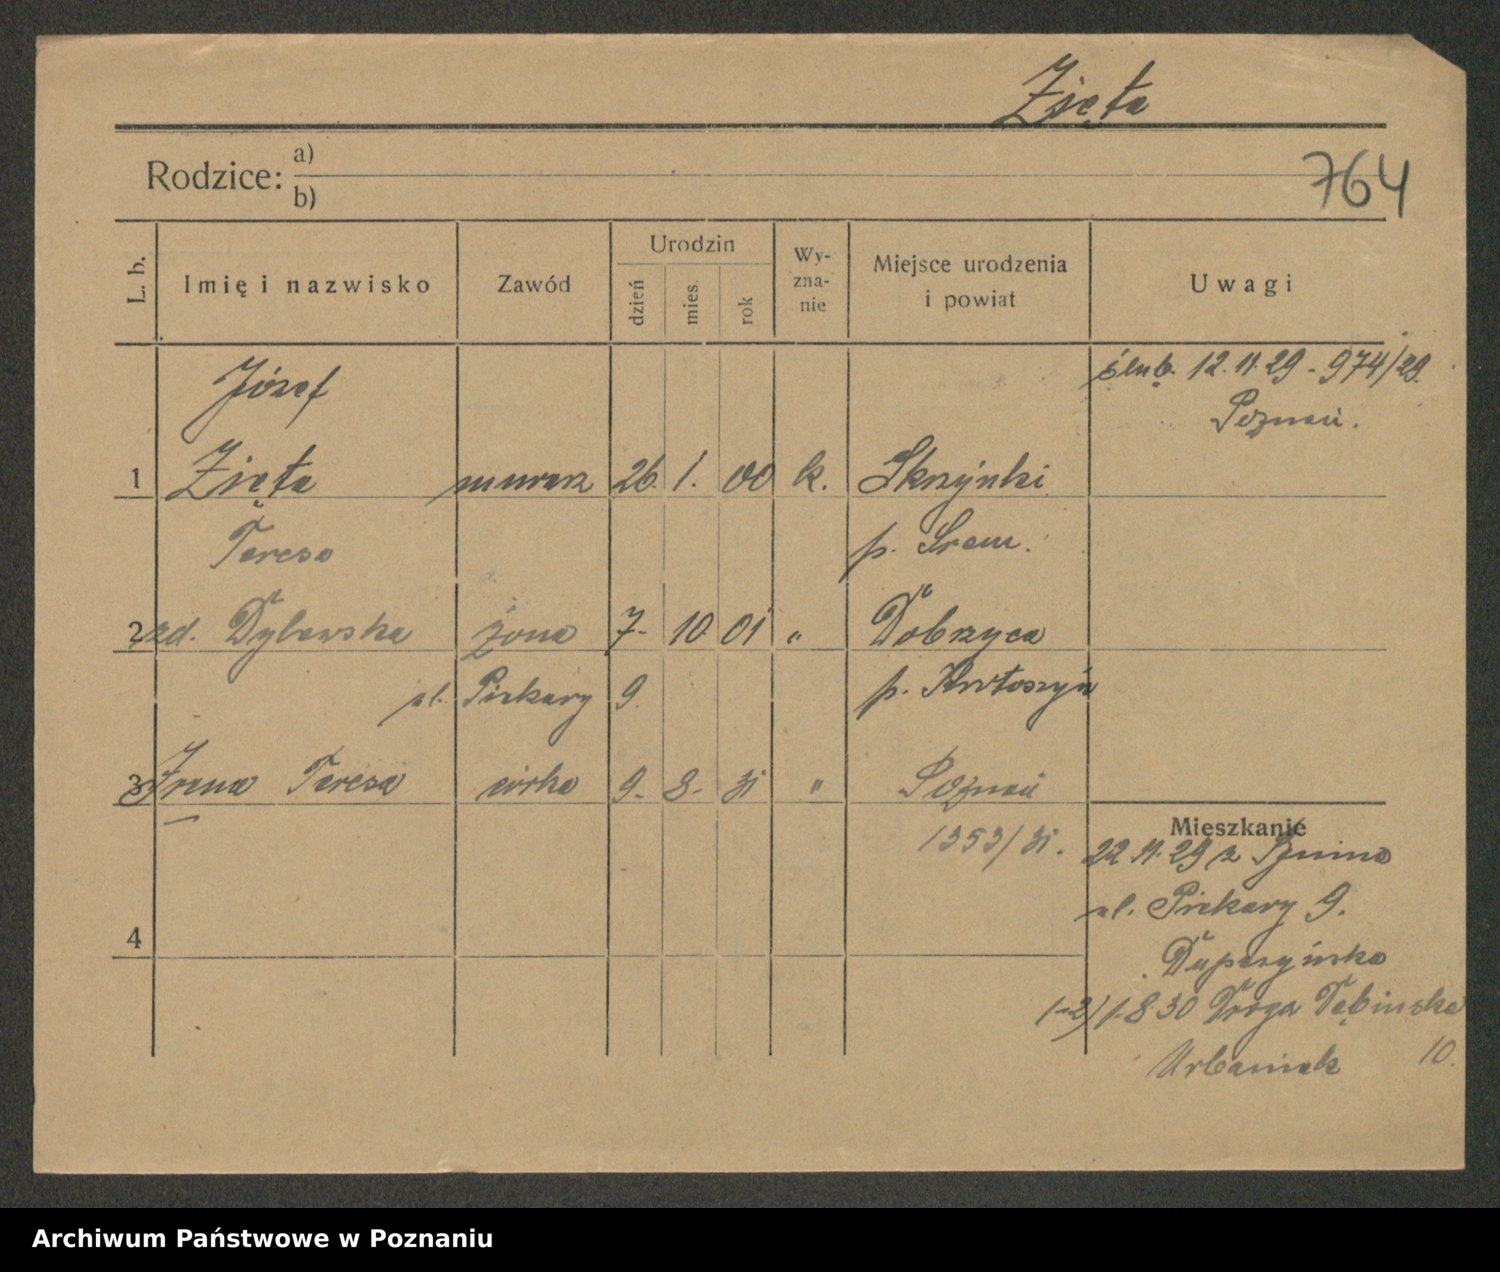 Zięta
Rodzice: a)
b)
764
L. b. Imię i nazwisko Zawód Urodzin dzień mies. rok Wy-zna-nie Miejsce urodzenia i powiat Uwagi
Józef ślub. 12.11.29 - 974/29.
Poznań.
1 Zięta murarz 26. 1. 00 k. Skrzynki
Teresa p. Śrem.
2 zd. Dylewska żona 7- 10 01 „ Dobrzyca
ul. Piekary 9. p. Krotoszyn
3 Irena Teresa córka 9- 8- 31 " Poznań
1353/31.
Mieszkanie
22.11.29 z
ul. Piekary 9.
4
1-2) 1.8.30 Droga Dębińska
10.
Urbaniak
Archiwum Państwowe w Poznaniu